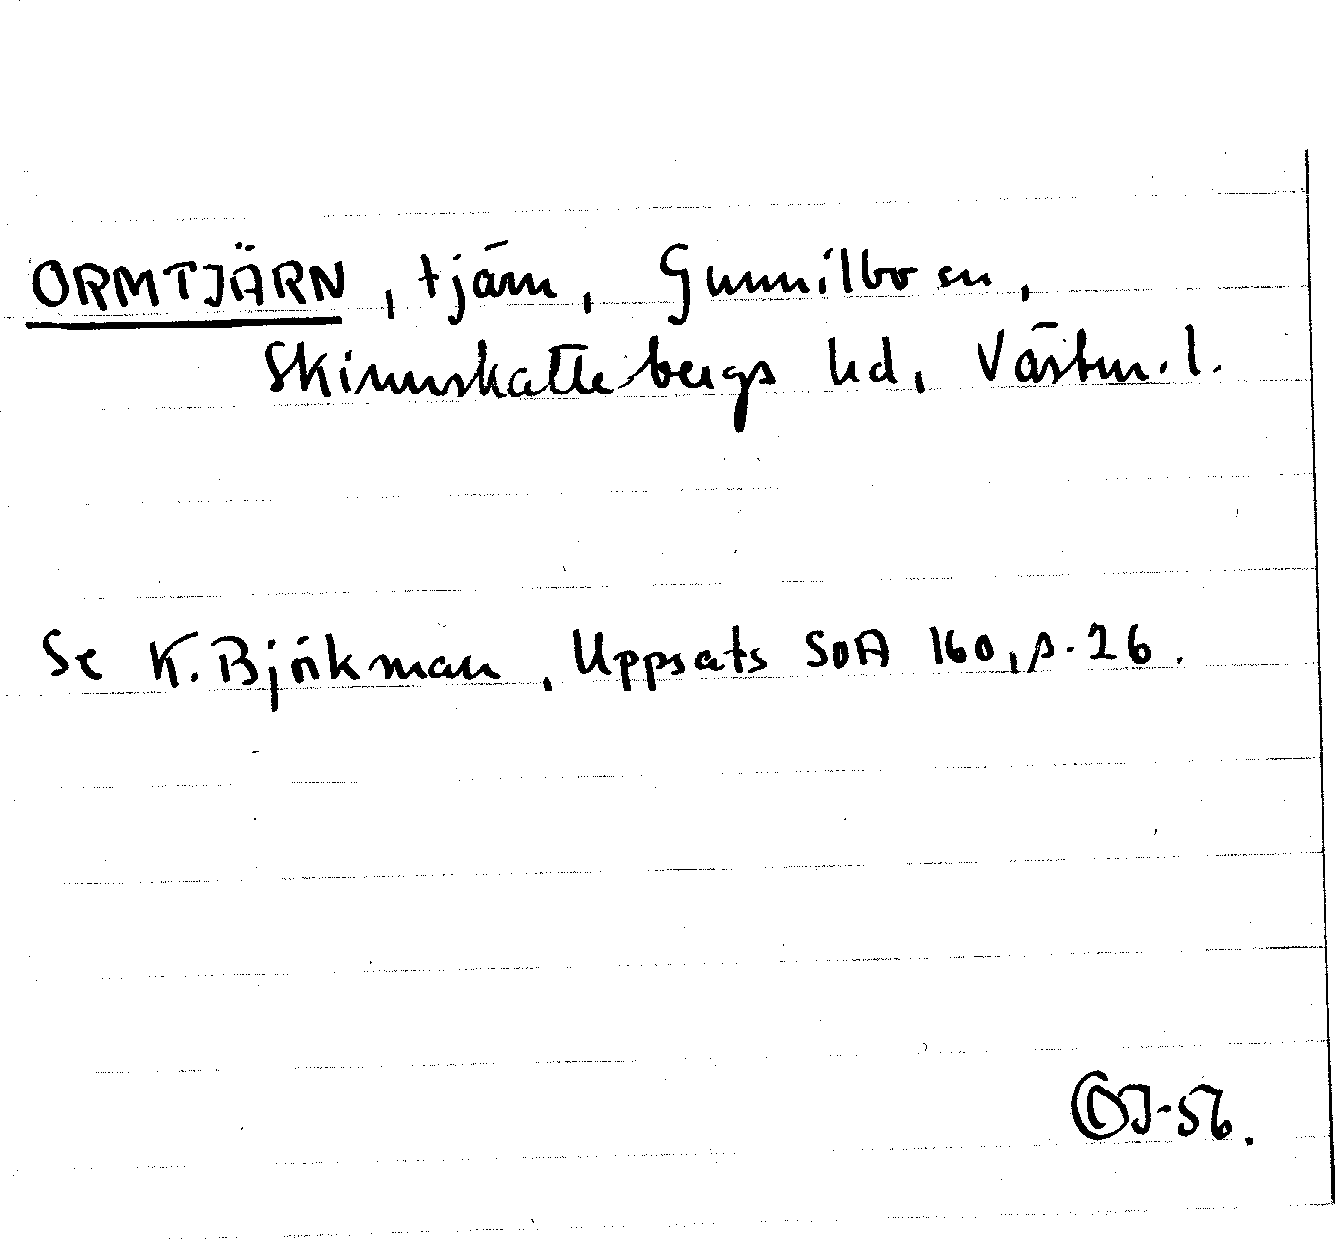 ORMTJÄRN, tjärn, Gunnilbo sn,
Skinnskattebergs hd, Västm. l.
Se K. Björkman, Uppsats SOA 160, s. 26.
-56.